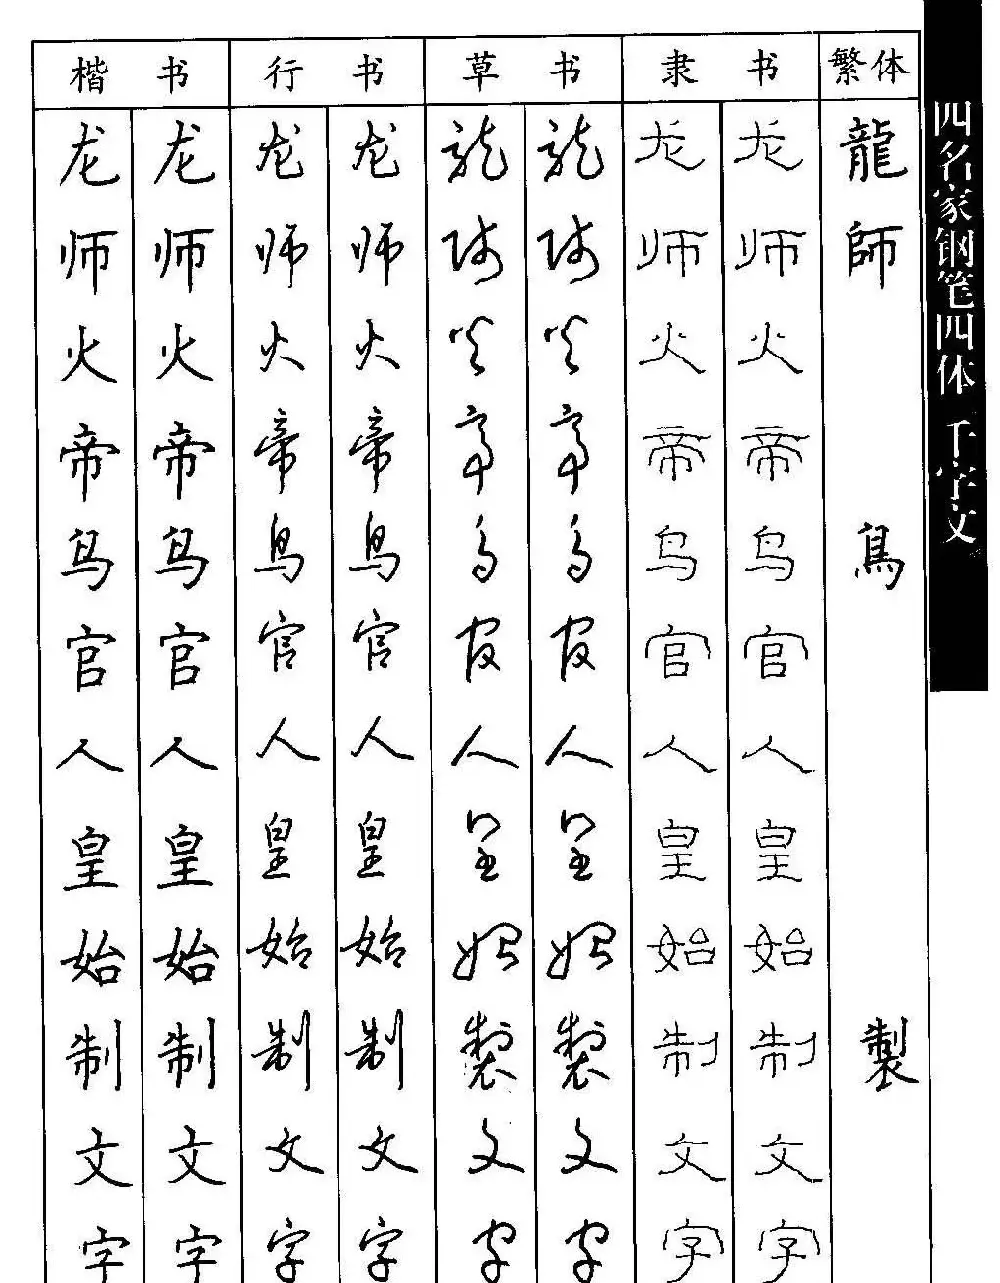 楷书 行书 草书 隶书 繁体
龙 龙 龙 龙 龍 龍 龙 龙 龍
师 师 师 师 师 师 师 师 師
火 火 火 火 火 火 火 火
帝 帝 帝 帝 帝 帝 帝 帝
鸟 鸟 鸟 鸟 鸟 鸟 鸟 鸟 鳥
官 官 官 官 官 官 官 官
人 人 人 人 人 人 人 人
皇 皇 皇 皇 皇 皇 皇 皇
始 始 始 始 始 始 始 始
制 制 制 制 製 製 制 制 製
文 文 文 文 文 文 文 文
字 字 字 字 字 字 字 字
四名家钢笔四体 千字文